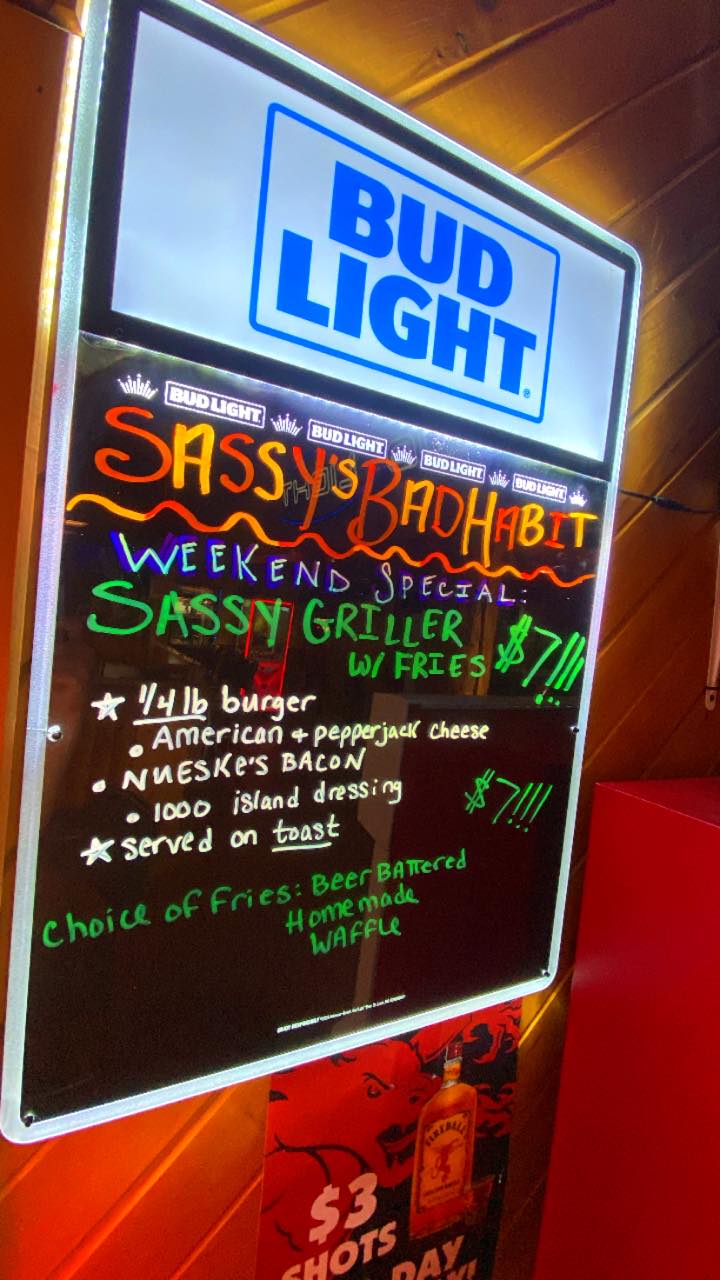 BUD
LIGHT
BUD LIGHT BUD LIGHT BUD LIGHT BUD LIGHT
SASSY'S BAD HABIT
WEEKEND SPECIAL:
SASSY GRILLER
W/ FRIES $7!!!
☆ 1/4 lb burger
• American + pepperjack cheese
• NUESKE'S BACON
• 1000 island dressing
$7!!!
☆ served on toast
Choice of Fries: Beer BATTered
Homemade
WAFFLE
FIREBALL
$3
SHOTS
DAY